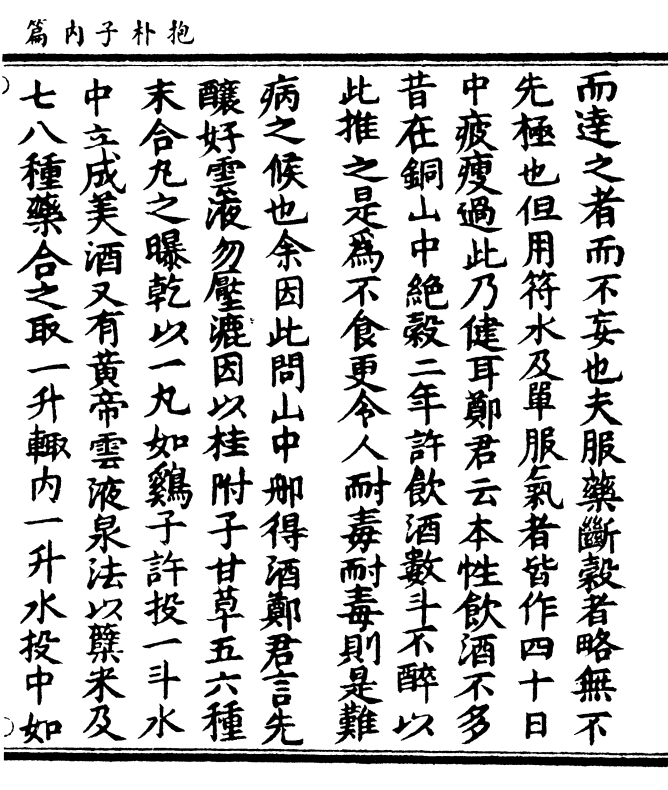 抱朴子内篇
而達之者而不妄也夫服藥斷穀者略無不
先極也但用符水及單服氣者皆作四十日
中疲瘦過此乃健耳鄭君云本性飲酒不多
昔在銅山中絶穀二年許飲酒數斗不醉以
此推之是爲不食更令人耐毒耐毒則是難
病之候也余因此問山中那得酒鄭君言先
釀好雲液勿壓漉因以桂附子甘草五六種
末合丸之曝乾以一丸如鷄子許投一斗水
中立成美酒又有黄帝雲液泉法以糵米及
七八種藥合之取一升輙内一升水投中如